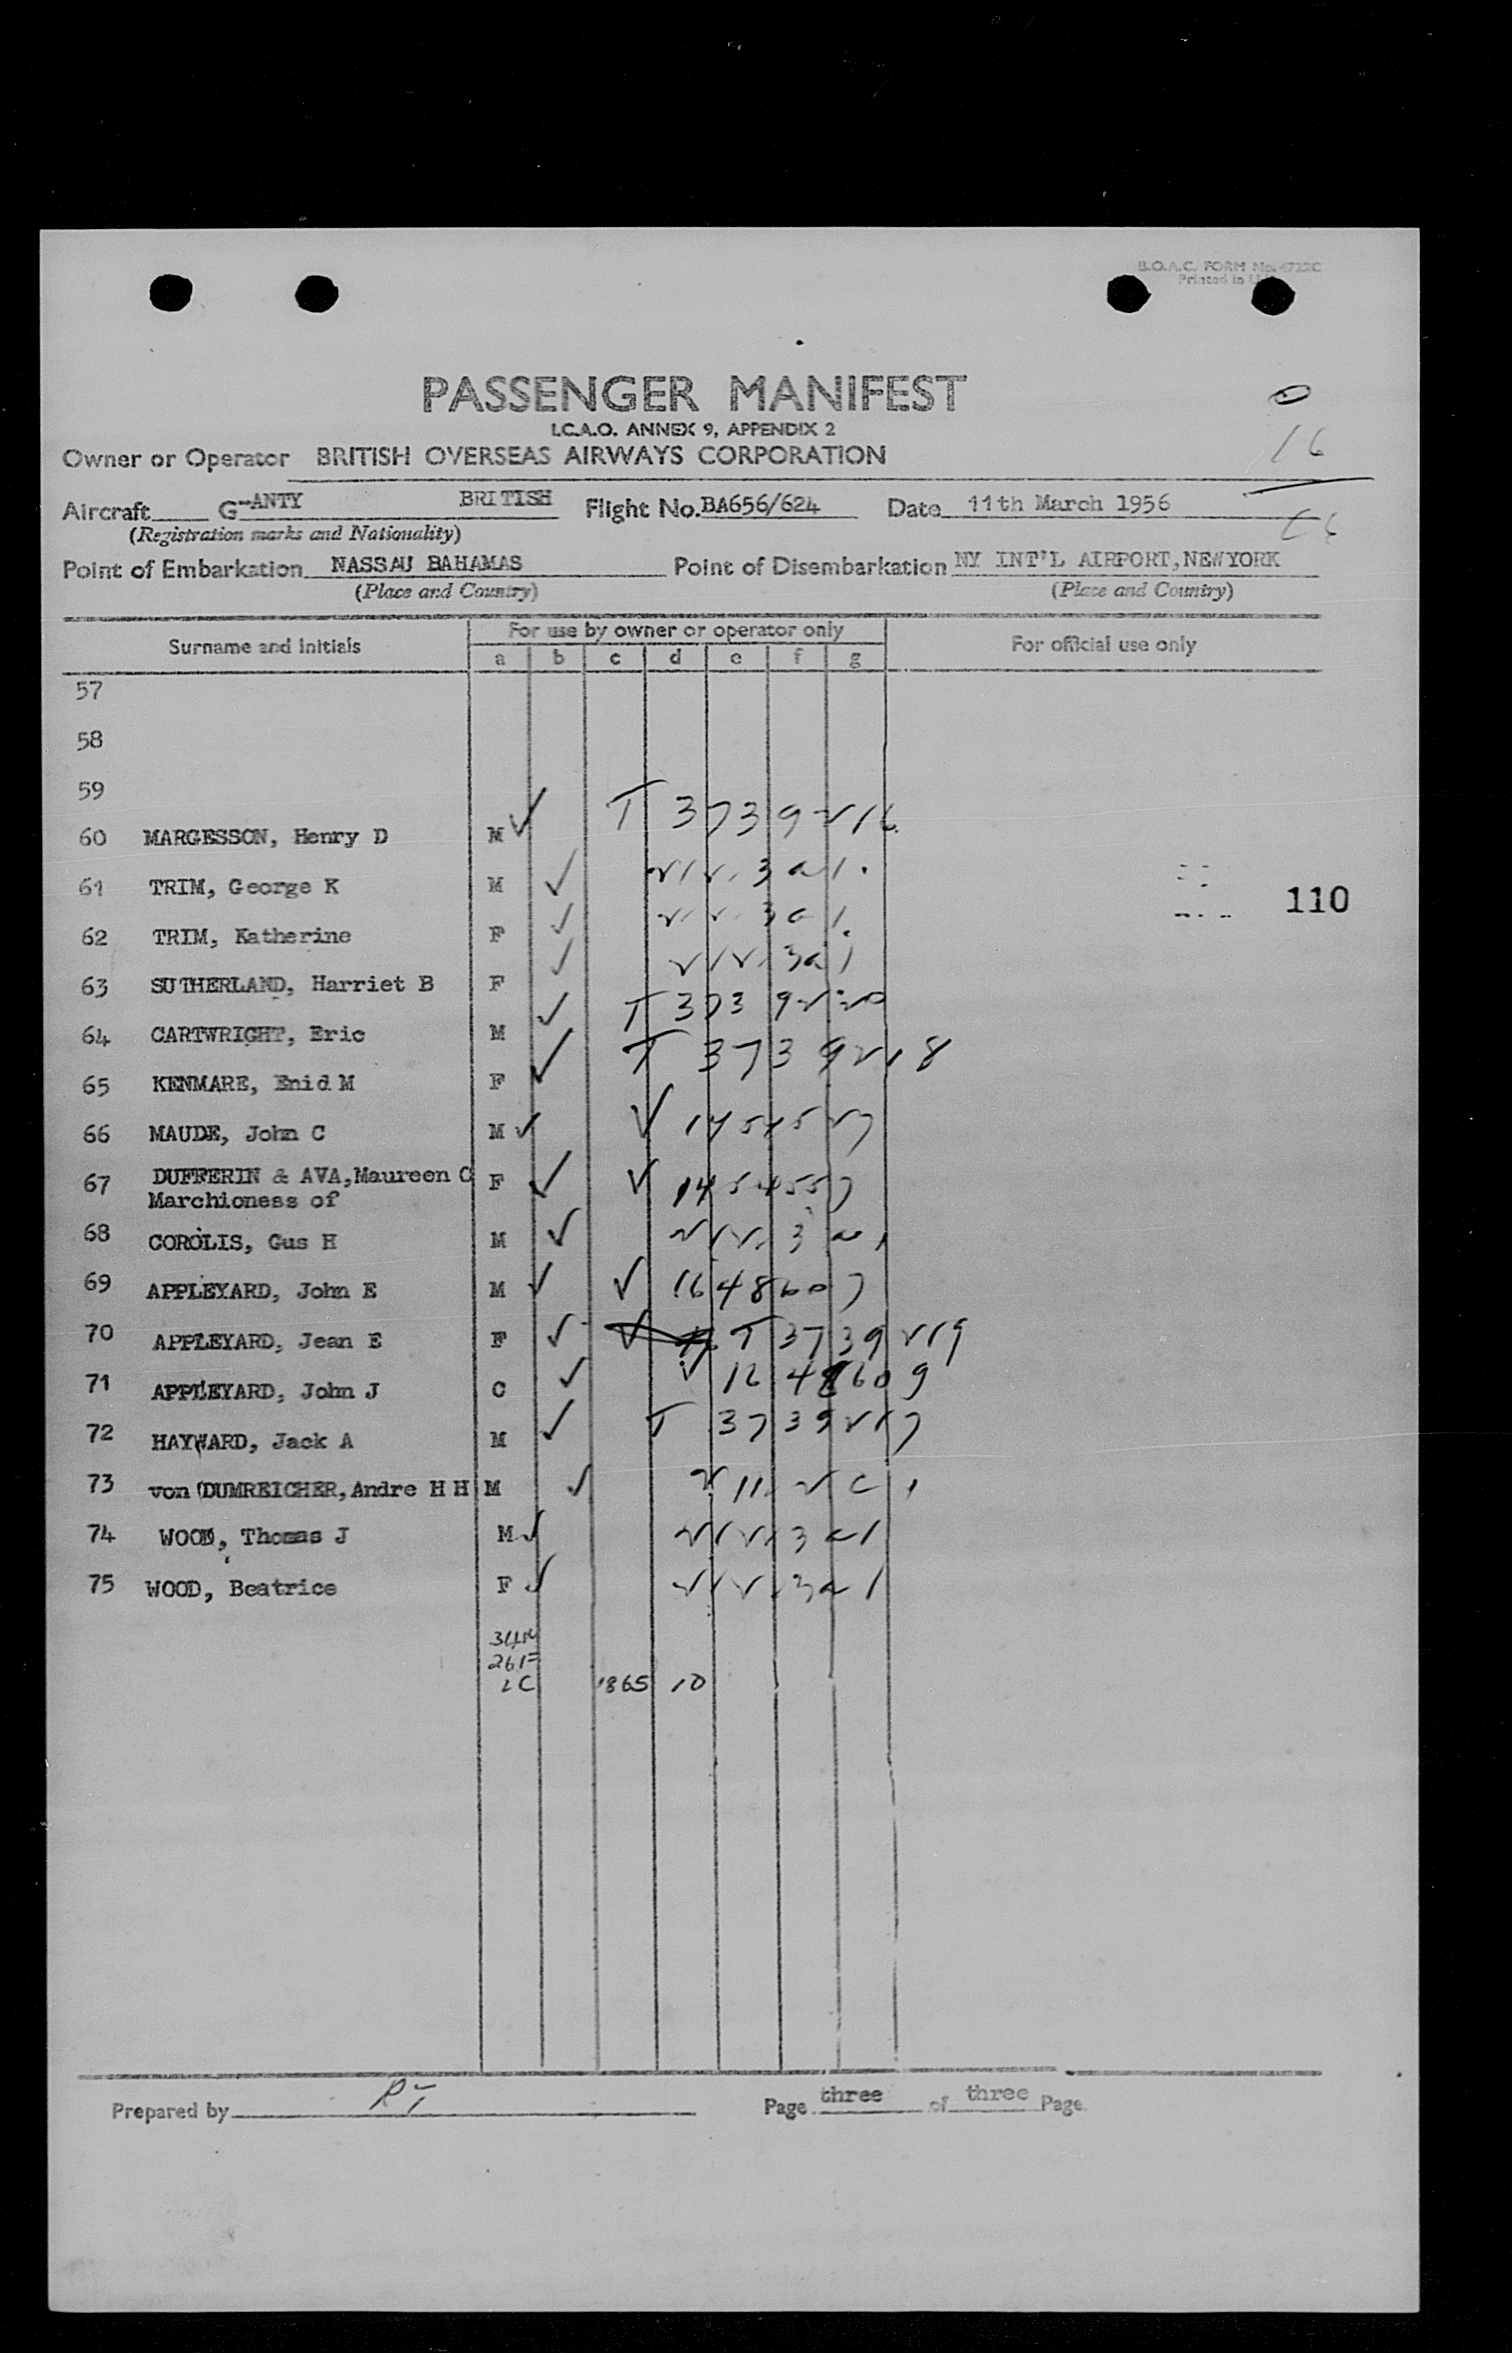 B.O.A.C. FORM No.
Printed in
PASSENGER MANIFEST
I.C.A.O. ANNEX 9, APPENDIX 2
0
16
Owner or Operator BRITISH OVERSEAS AIRWAYS CORPORATION
Aircraft G-ANTY BRITISH Flight No. BA656/624 Date 11th March 1956
(Registration marks and Nationality)
Point of Embarkation NASSAU BAHAMAS Point of Disembarkation NY INT'L AIRPORT, NEWYORK
(Place and Country) (Place and Country)
Surname and initials For use by owner or operator only For official use only
a b c d e f g
57
58
59
60 MARGESSON, Henry D M ✓ T 3739216
61 TRIM, George K M ✓
62 TRIM, Katherine F ✓
63 SUTHERLAND, Harriet B F ✓
64 CARTWRIGHT, Eric M ✓ T 3739220
65 KENMARE, Enid M F ✓ T 3739218
66 MAUDE, John C M ✓ V
67 DUFFERIN & AVA, Maureen C F ✓ V 1454557
Marchioness of
68 COROLIS, Gus H M ✓
69 APPLEYARD, John E M ✓ V 1648607
70 APPLEYARD, Jean E F ✓ T 3739219
71 APPLEYARD, John J C ✓ V 1648609
72 HAYWARD, Jack A M ✓ T 3739217
73 von DUMREICHER, Andre H H M ✓
74 WOOD, Thomas J M ✓
75 WOOD, Beatrice F ✓
110
34M
26F
1865 10
Prepared by Page three of three Page